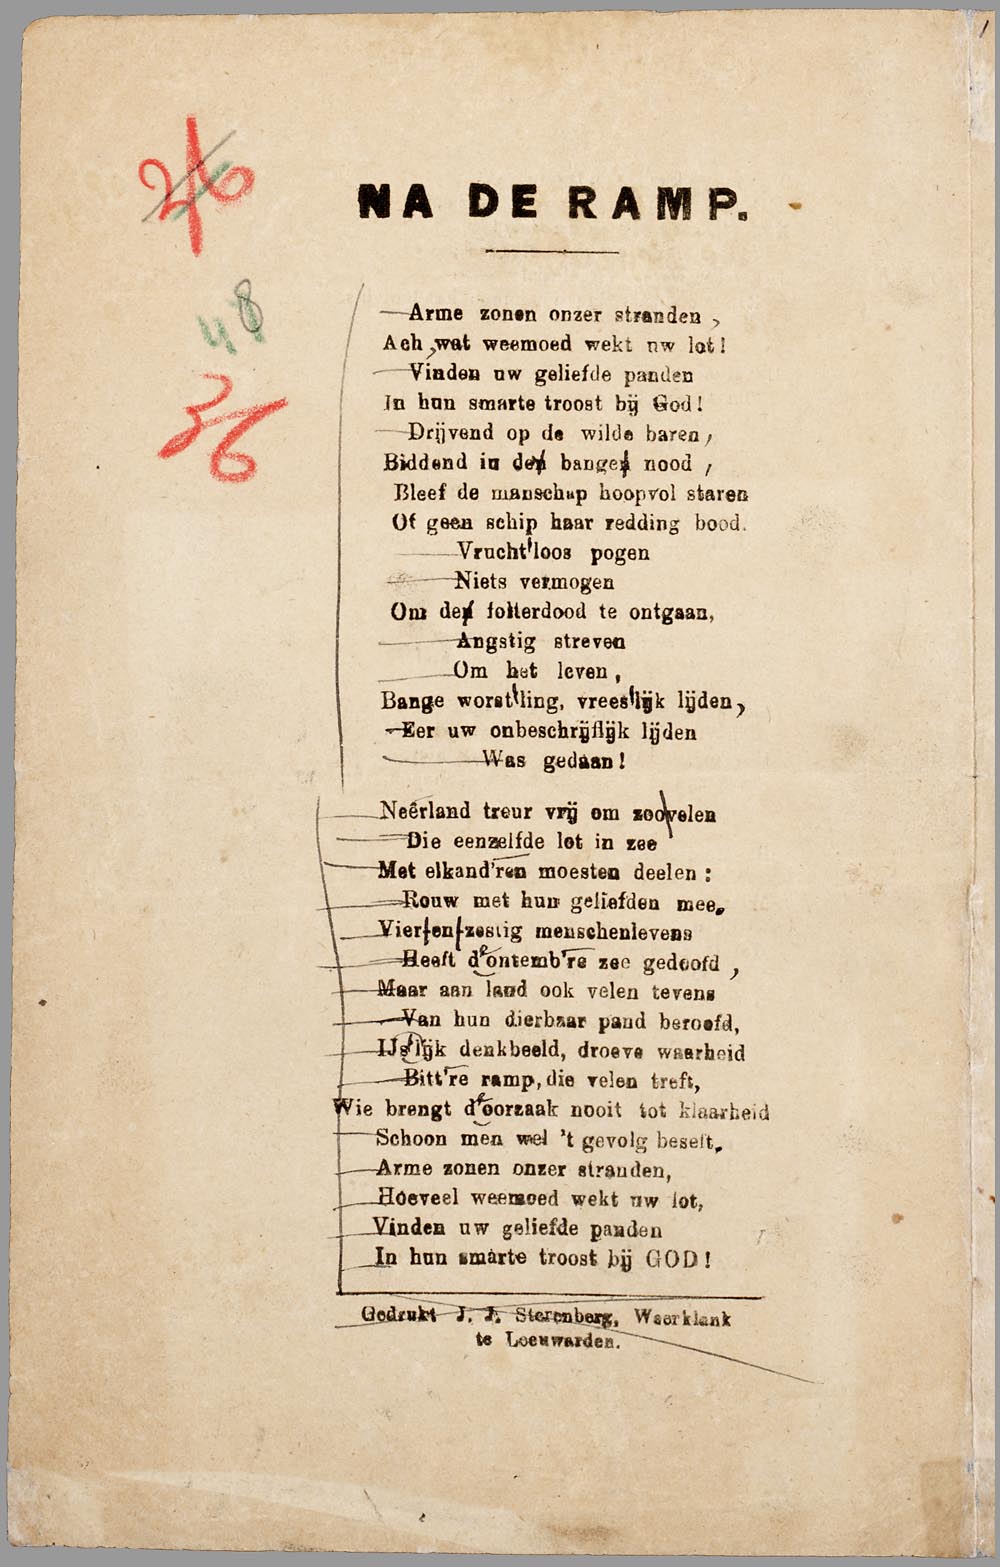 26
NA DE RAMP.
48
36
Arme zonen onzer stranden,
Ach, wat weemoed wekt uw lot!
Vinden uw geliefde panden
In hun smarte troost bij God!
Drijvend op de wilde baren,
Biddend in den bangen nood,
Bleef de manschap hoopvol staren
Of geen schip haar redding bood.
Vrucht'loos pogen
Niets vermogen
Om den folterdood te ontgaan,
Angstig streven
Om het leven,
Bange worst'ling, vrees'lijk lijden,
Eer uw onbeschrijflijk lijden
Was gedaan!
Neêrland treur vrij om zoovelen
Die eenzelfde lot in zee
Met elkand'ren moesten deelen:
Rouw met hun geliefden mee.
Vier-en-zestig menschenlevens
Heeft d'ontemb're zee gedoofd,
Maar aan land ook velen tevens
Van hun dierbaar pand beroofd,
IJs'lijk denkbeeld, droeve waarheid
Bitt're ramp, die velen treft,
Wie brengt d'oorzaak nooit tot klaarheid
Schoon men wel 't gevolg beseft.
Arme zonen onzer stranden,
Hoeveel weemoed wekt uw lot,
Vinden uw geliefde panden
In hun smarte troost bij GOD!
Gedrukt J. J. Sterenberg, Waerklank
te Leeuwarden.